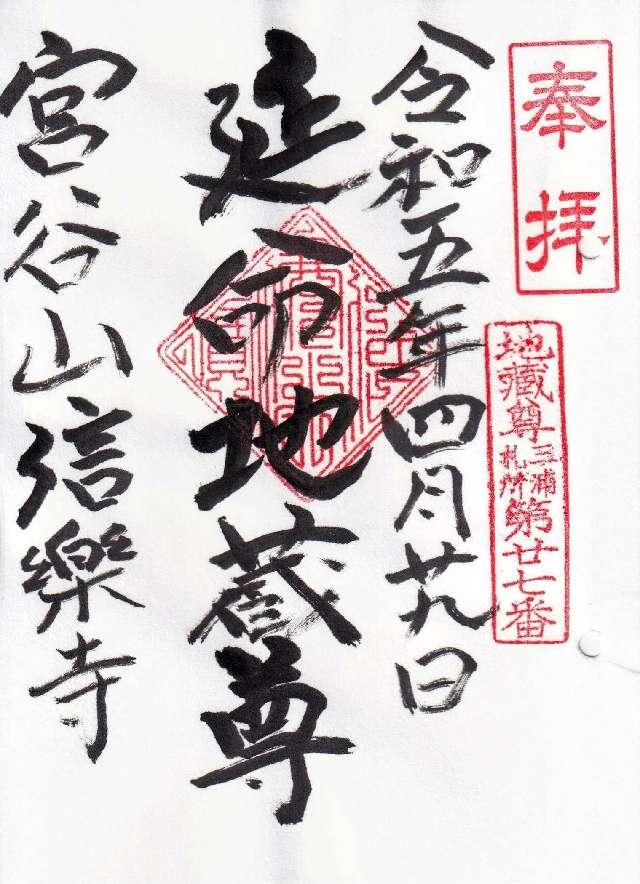 奉拝
地藏尊三浦札所第廿七番
令和五年四月廿九日
延命地蔵尊
宮谷山信樂寺